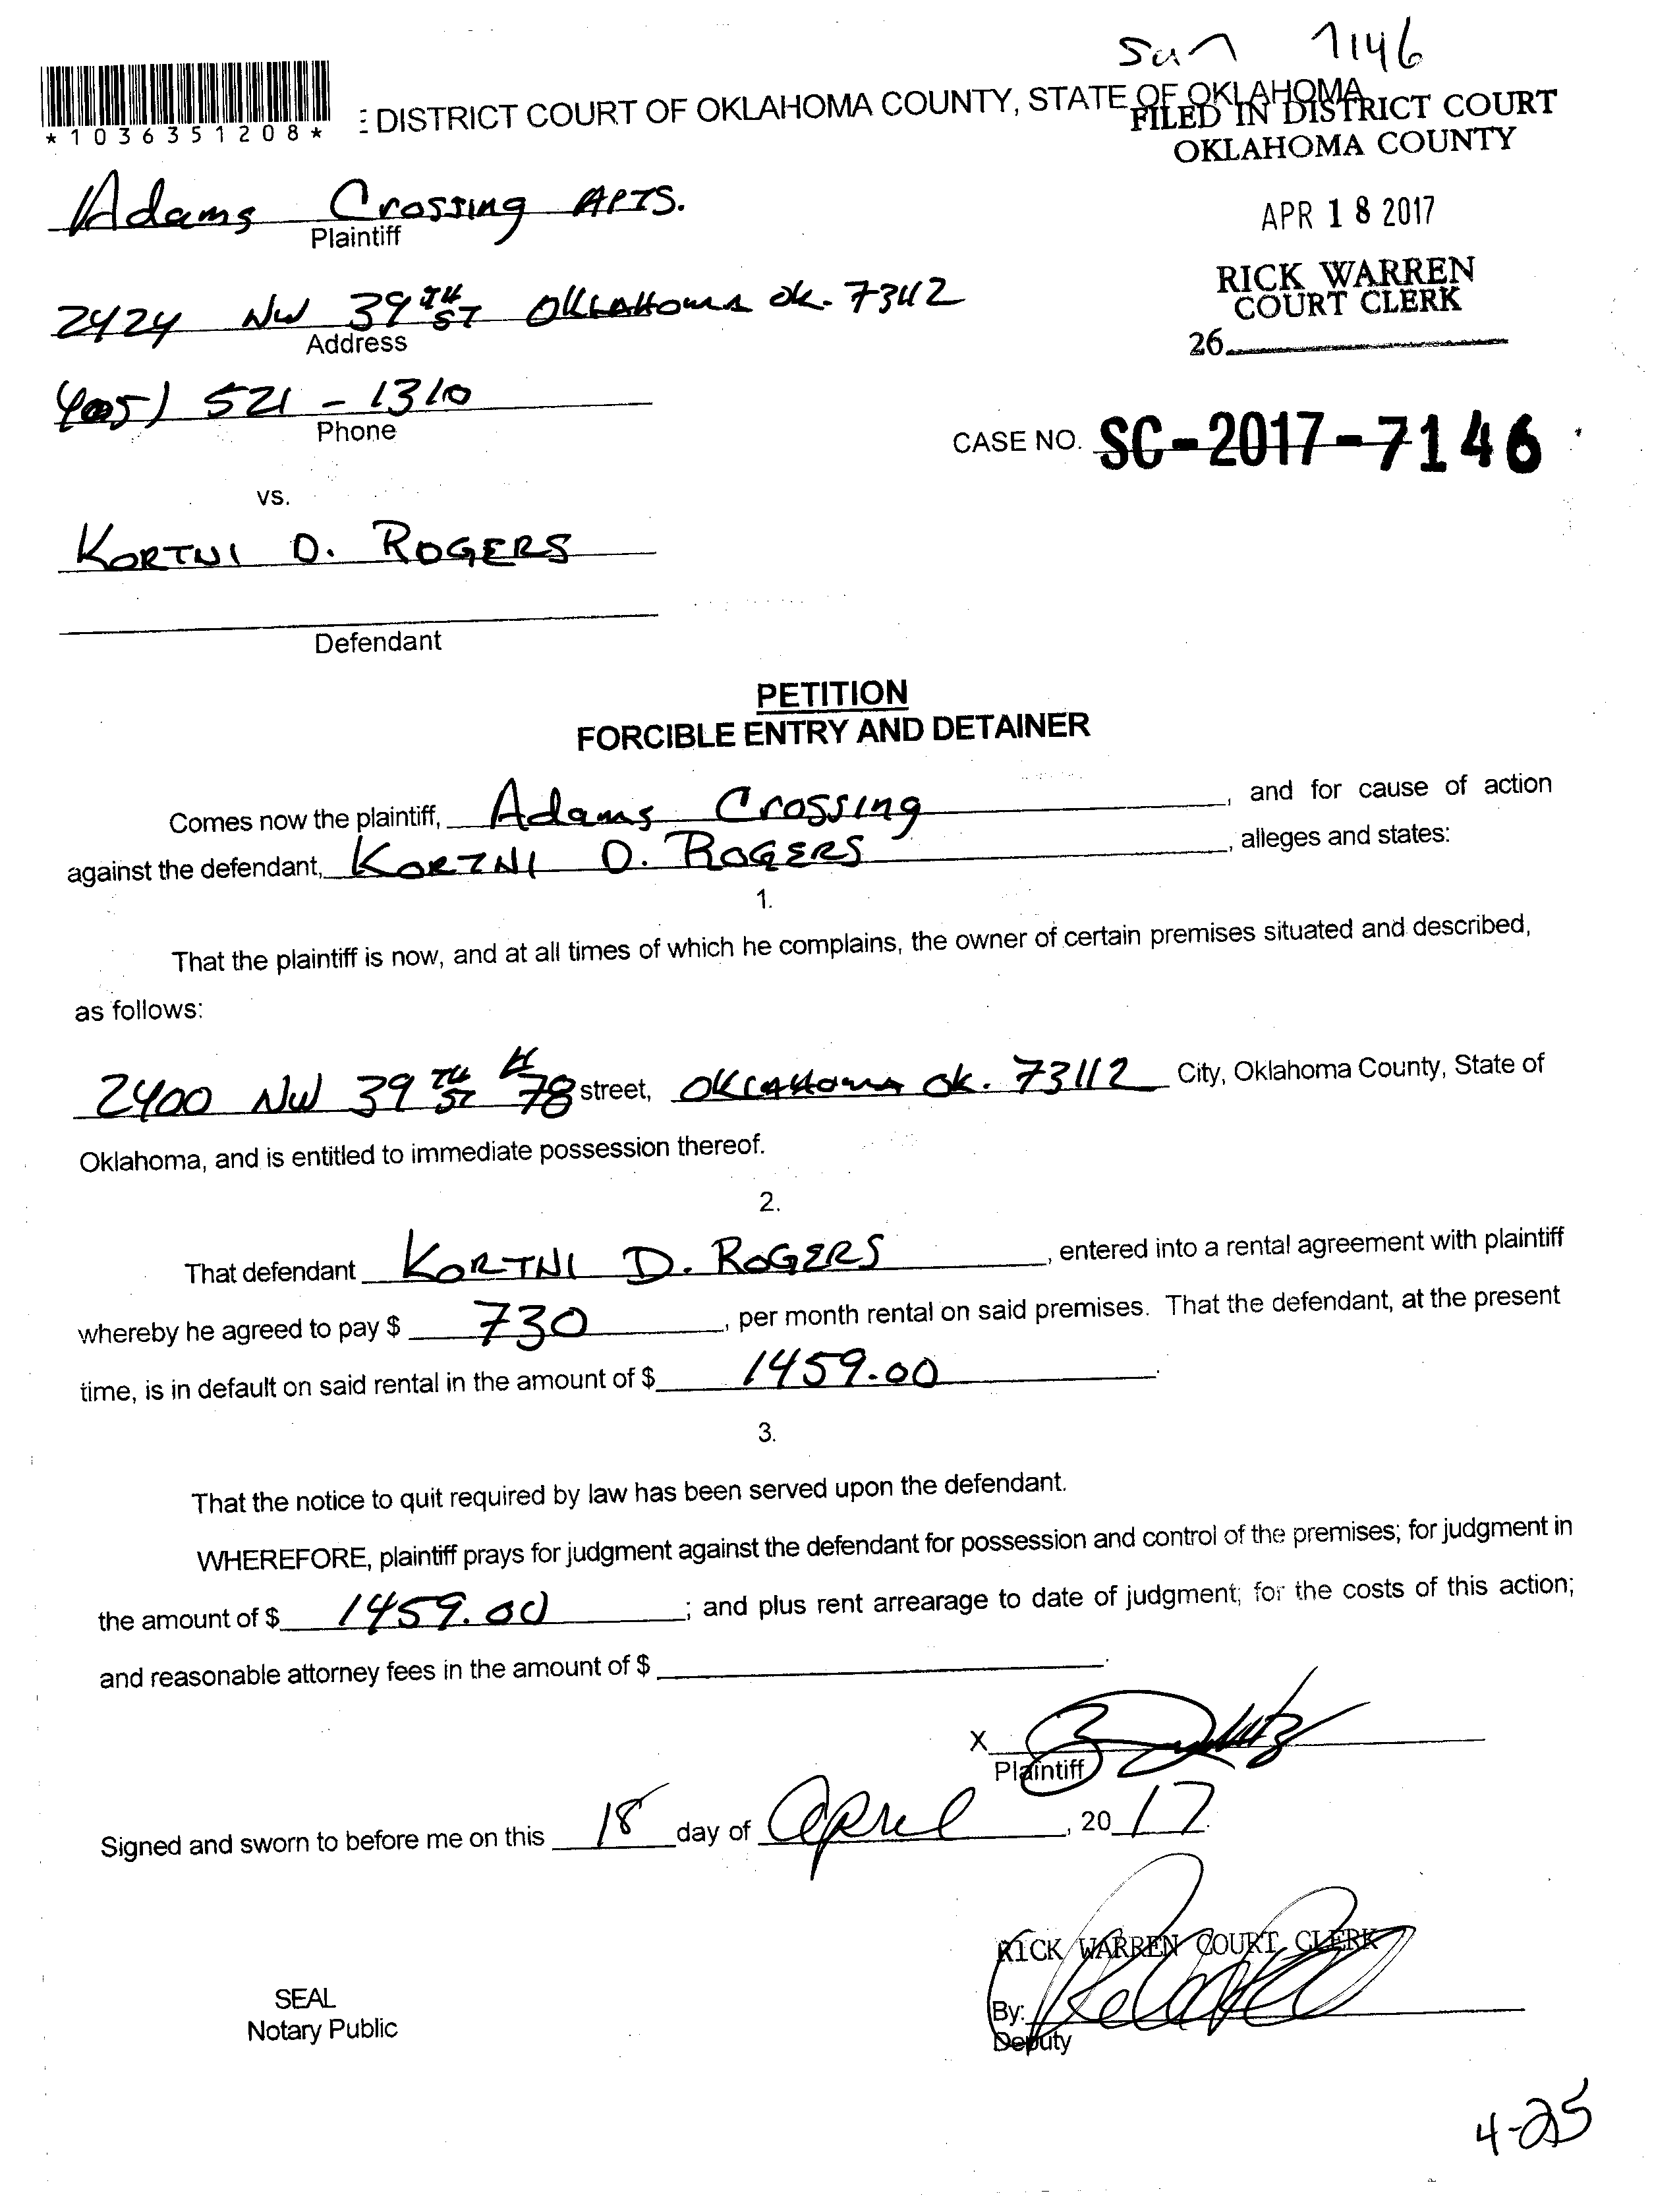 Sun 7146
*1036351208*
DISTRICT COURT OF OKLAHOMA COUNTY, STATE OF OKLAHOMA
FILED IN DISTRICT COURT
OKLAHOMA COUNTY
Adams Crossing APTS.
Plaintiff
APR 18 2017
RICK WARREN
COURT CLERK
2424 NW 39TH ST OKLAHOMA OK. 73112
Address
26
405) 521-1310
Phone
CASE NO. SC-2017-7146
vs.
KORTNI D. ROGERS
Defendant
PETITION
FORCIBLE ENTRY AND DETAINER
Comes now the plaintiff, Adams Crossing, and for cause of action
against the defendant, KORTNI D. ROGERS, alleges and states:
1.
That the plaintiff is now, and at all times of which he complains, the owner of certain premises situated and described,
as follows:
2400 NW 39TH ST #78 street, OKLAHOMA OK. 73112 City, Oklahoma County, State of
Oklahoma, and is entitled to immediate possession thereof.
2.
That defendant KORTNI D. ROGERS, entered into a rental agreement with plaintiff
whereby he agreed to pay $ 730, per month rental on said premises. That the defendant, at the present
time, is in default on said rental in the amount of $ 1459.00.
3.
That the notice to quit required by law has been served upon the defendant.
WHEREFORE, plaintiff prays for judgment against the defendant for possession and control of the premises; for judgment in
the amount of $ 1459.00; and plus rent arrearage to date of judgment; for the costs of this action;
and reasonable attorney fees in the amount of $ .
X
Plaintiff
Signed and sworn to before me on this 18 day of April, 2017.
RICK WARREN COURT CLERK
SEAL
Notary Public
By:
Deputy
4-25